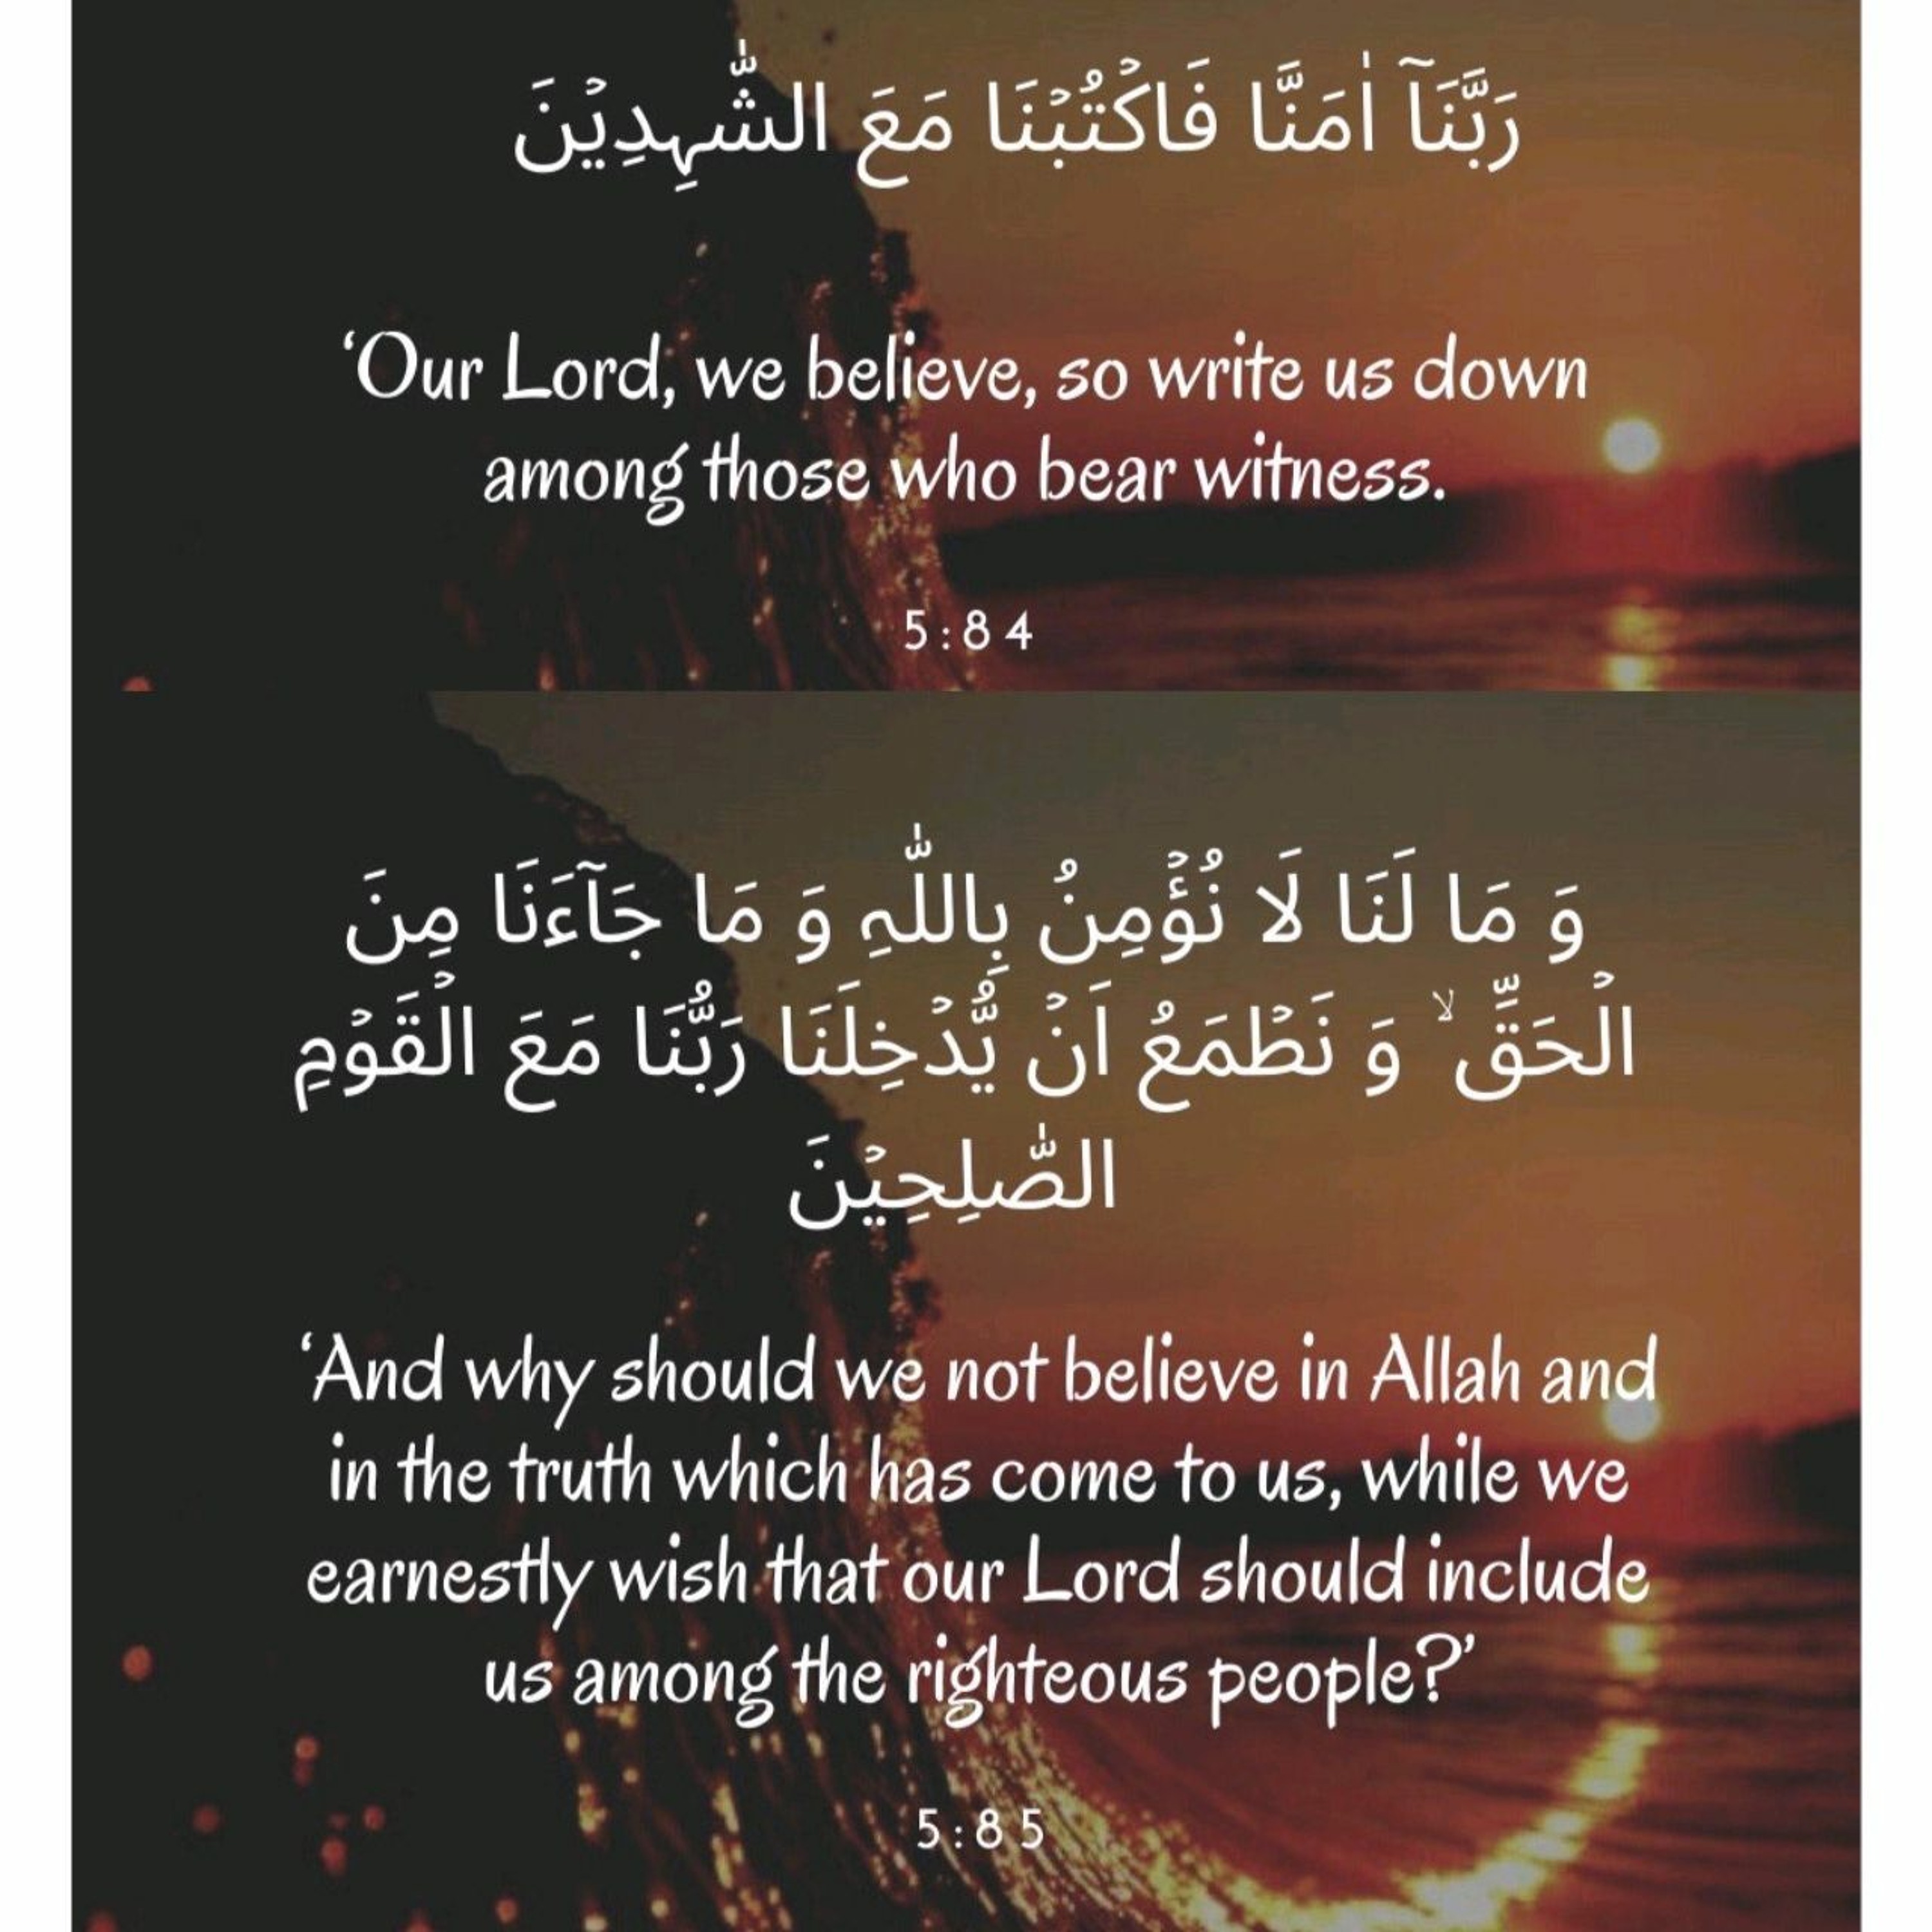 رَبَّنَاۤ اٰمَنَّا فَاکۡتُبۡنَا مَعَ الشّٰہِدِیۡنَ
‘Our Lord, we believe, so write us down
among those who bear witness.
5:84
وَ مَا لَنَا لَا نُؤۡمِنُ بِاللّٰہِ وَ مَا جَآءَنَا مِنَ
الۡحَقِّ ۙ وَ نَطۡمَعُ اَنۡ یُّدۡخِلَنَا رَبُّنَا مَعَ الۡقَوۡمِ
الصّٰلِحِیۡنَ
‘And why should we not believe in Allah and
in the truth which has come to us, while we
earnestly wish that our Lord should include
us among the righteous people?’
5:85